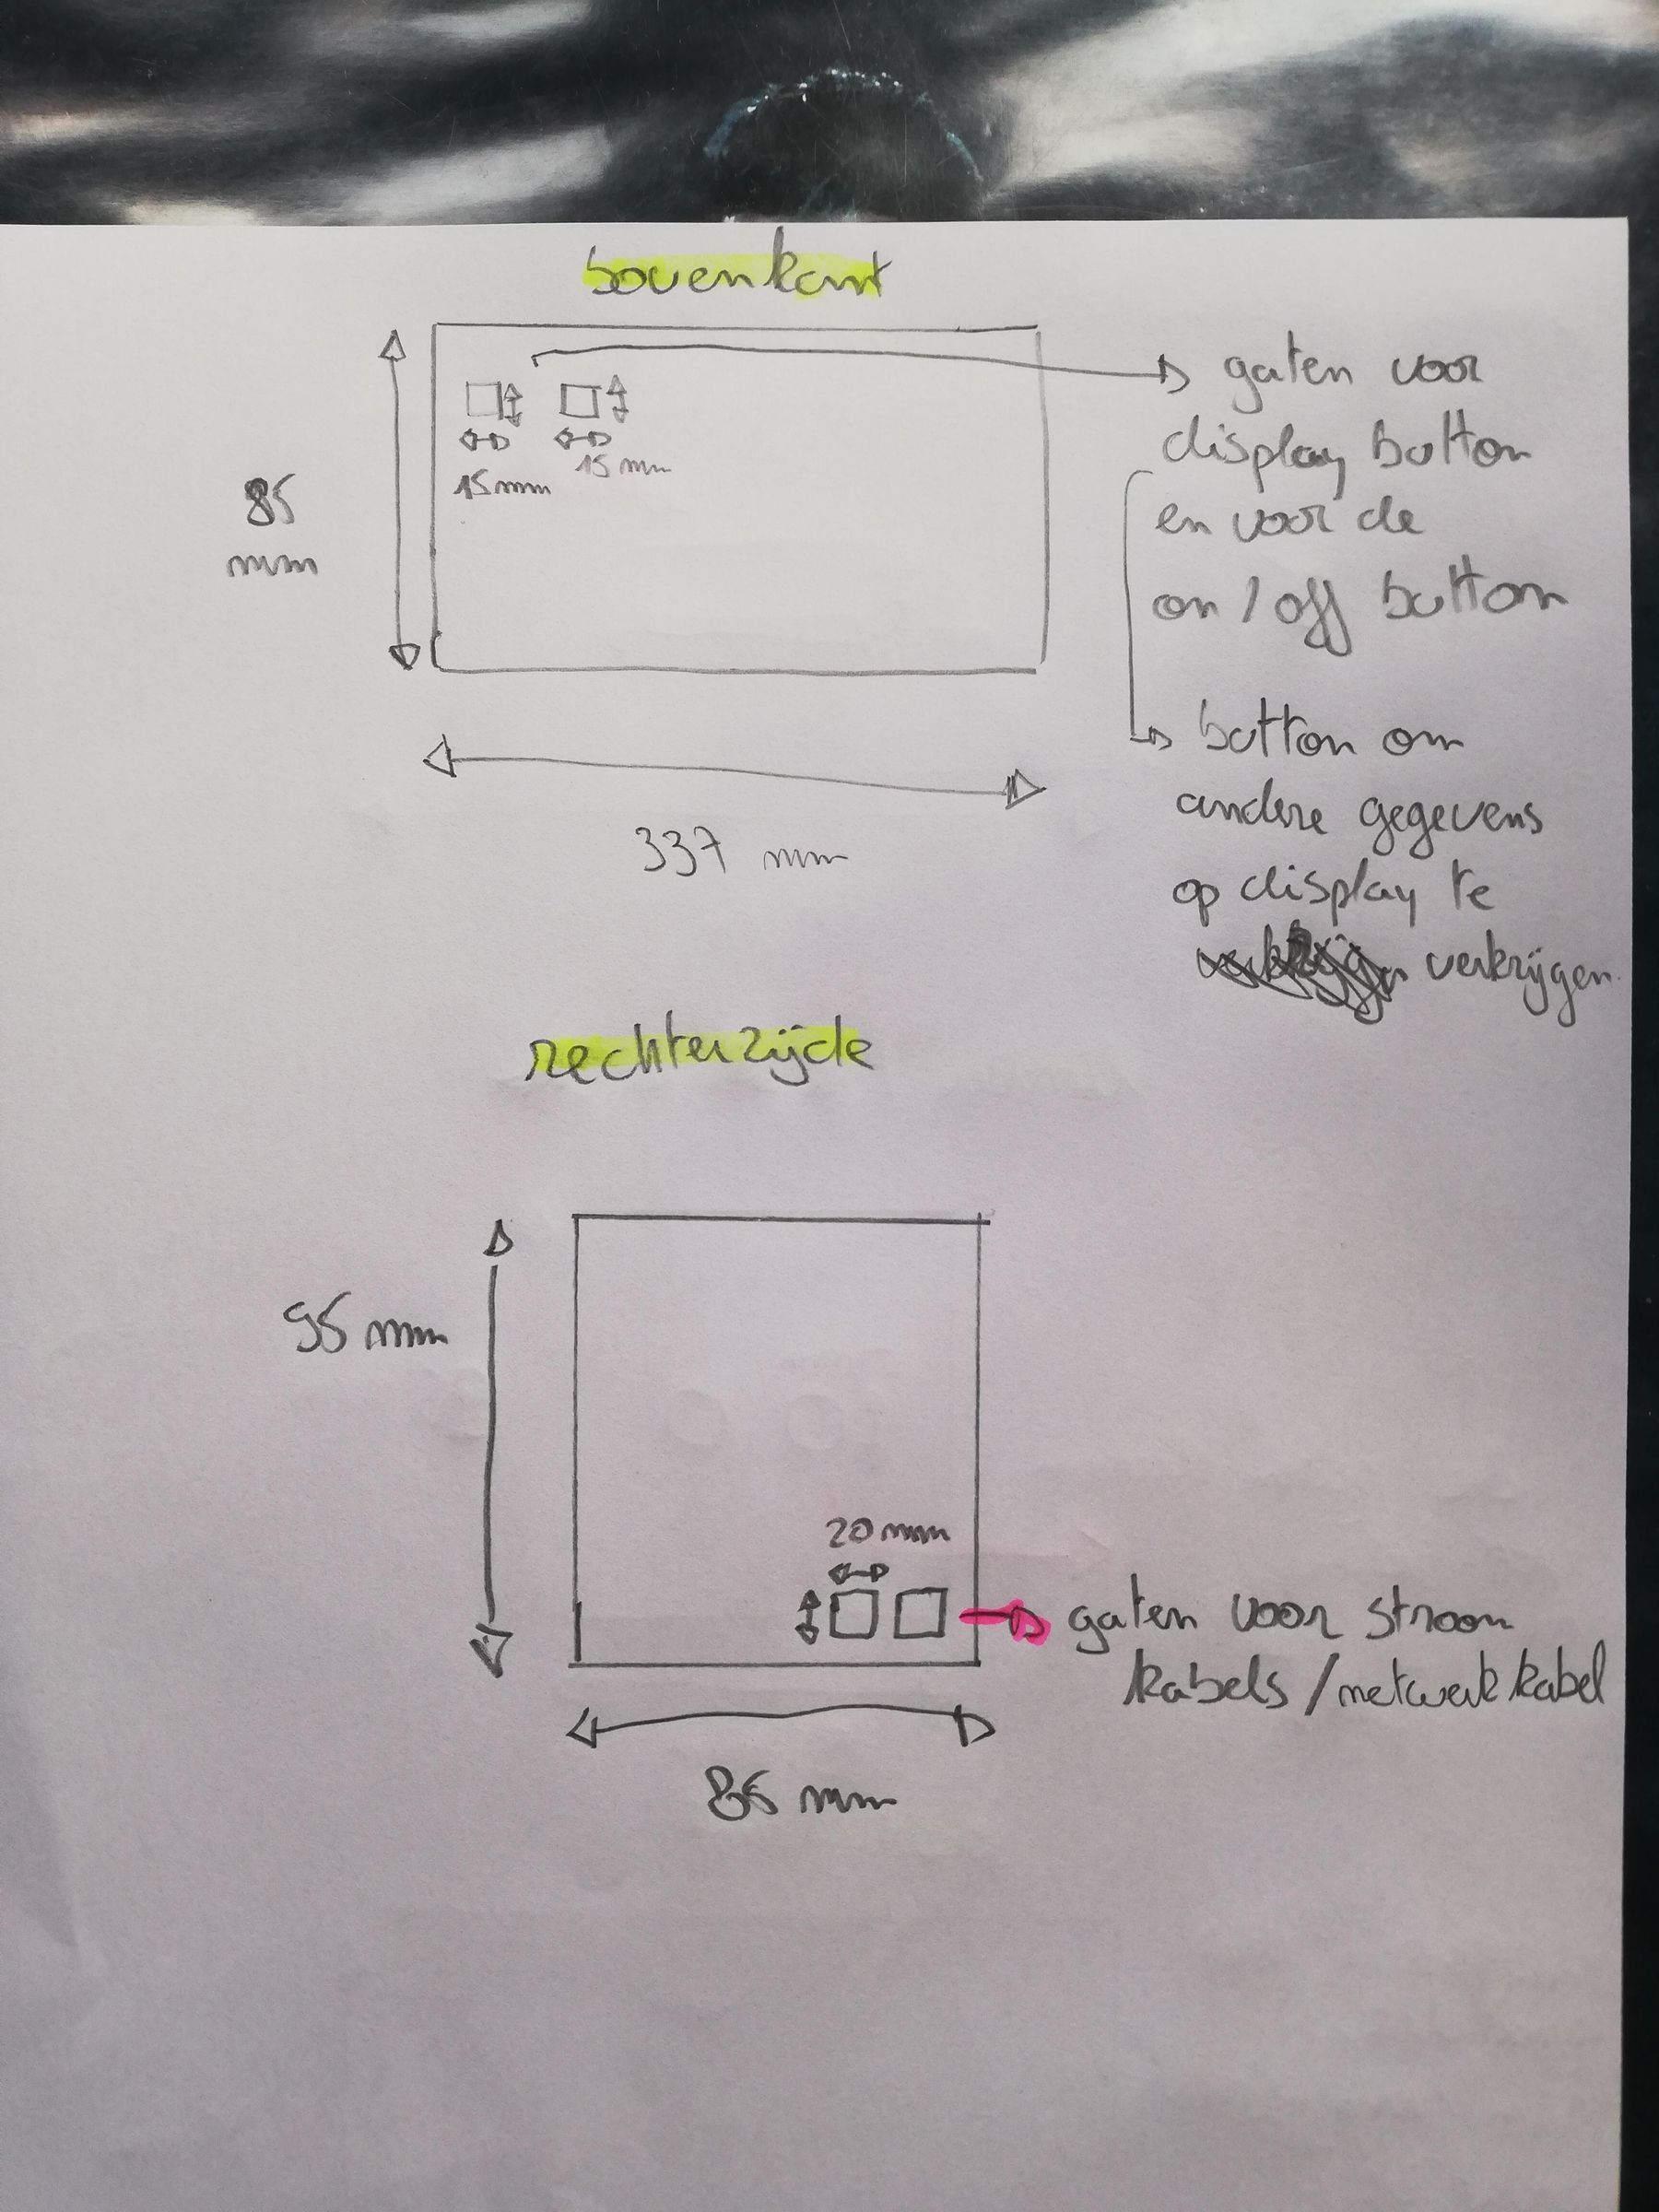 bovenkant
gaten voor
display button
en voor de
on / off button
15 mm
15 mm
85
mm
button om
andere gegevens
op display te
verkrijgen
337 mm
rechterzijde
95 mm
20 mm
gaten voor stroom
kabels / netwerk kabel
85 mm